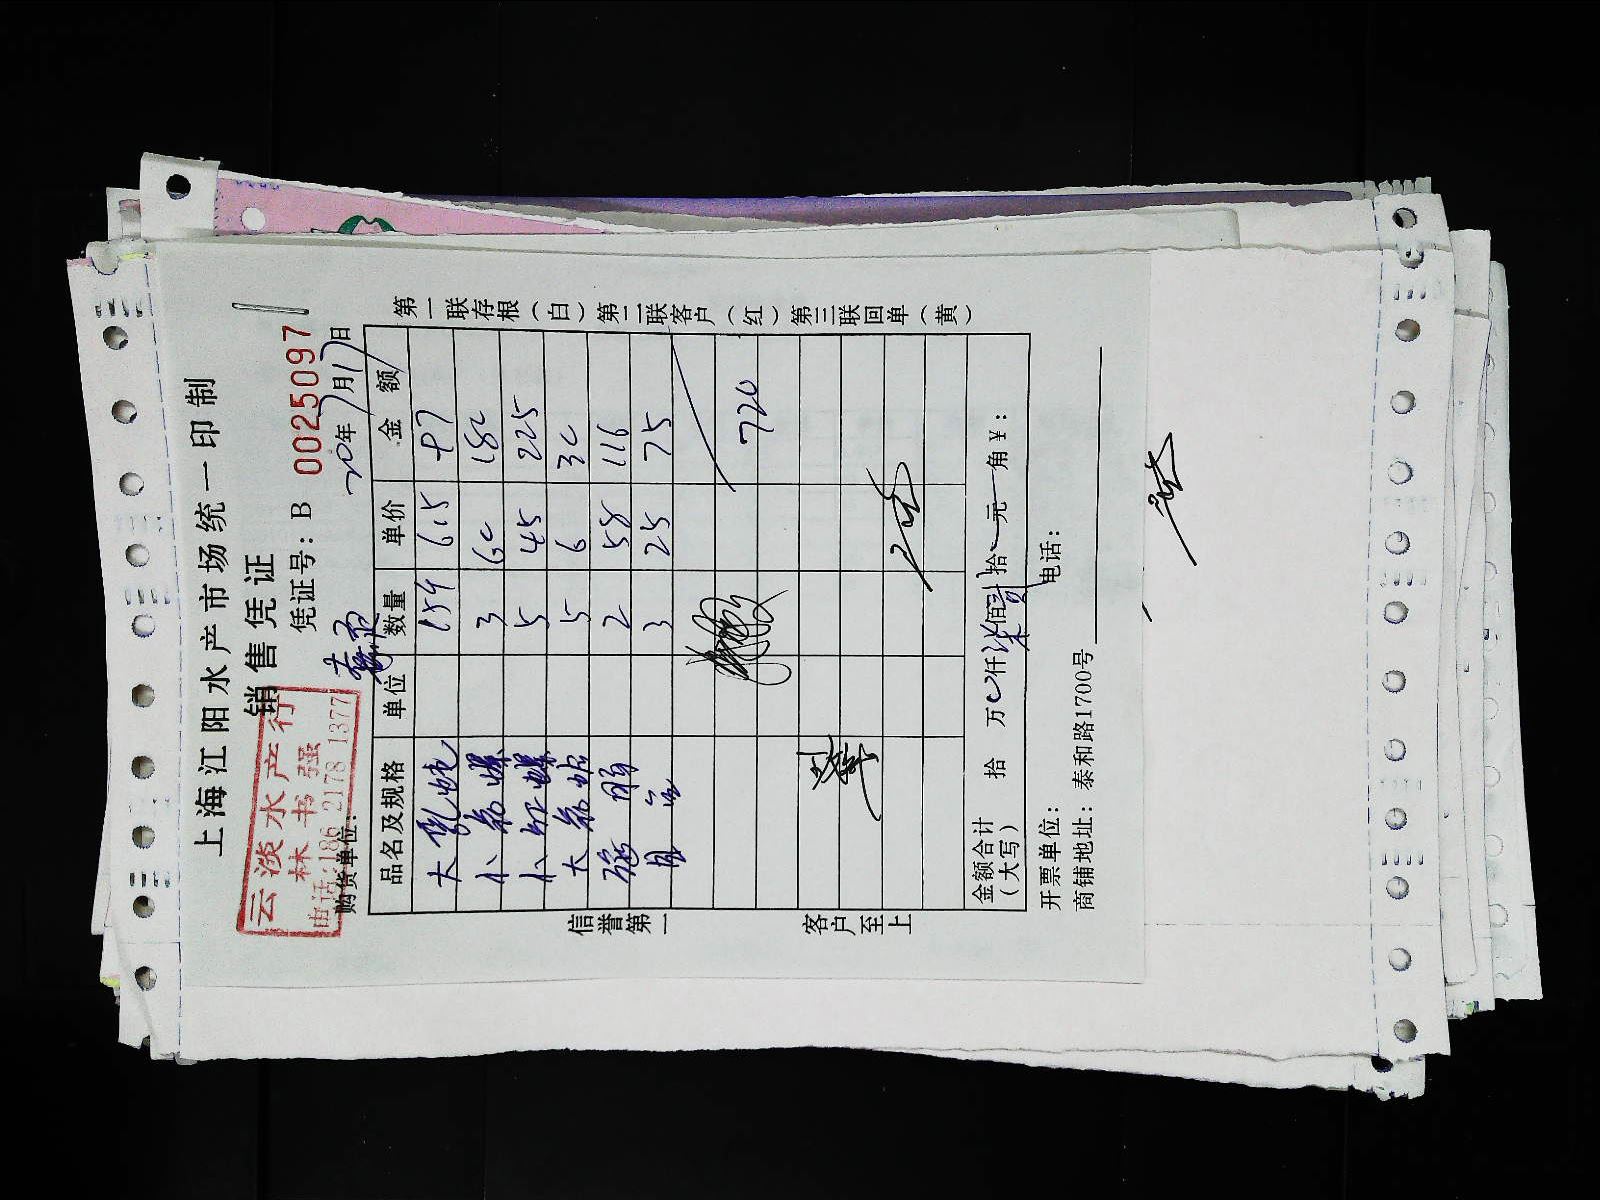 上海江阳水产市场统一印制
销售凭证
云淡水产行
林书强
电话:186 2178 1377
凭证号:B 0025097
购货单位:
20年7月17日
品名及规格 单位 数量 单价 金额
大 6.5
小 3 60 180
小 5 45 225
大 5 6 30
2 58 116
3 25 75
720
金额合计(大写) 拾 万 仟 柒佰 贰拾 元 角 ¥:
开票单位: 电话:
商铺地址:泰和路1700号
信誉第一 客户至上
第一联存根(白)第二联客户(红)第三联回单(黄)